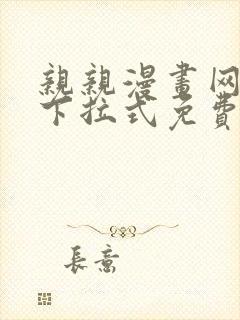 親親漫畫网
下拉式免費
長意